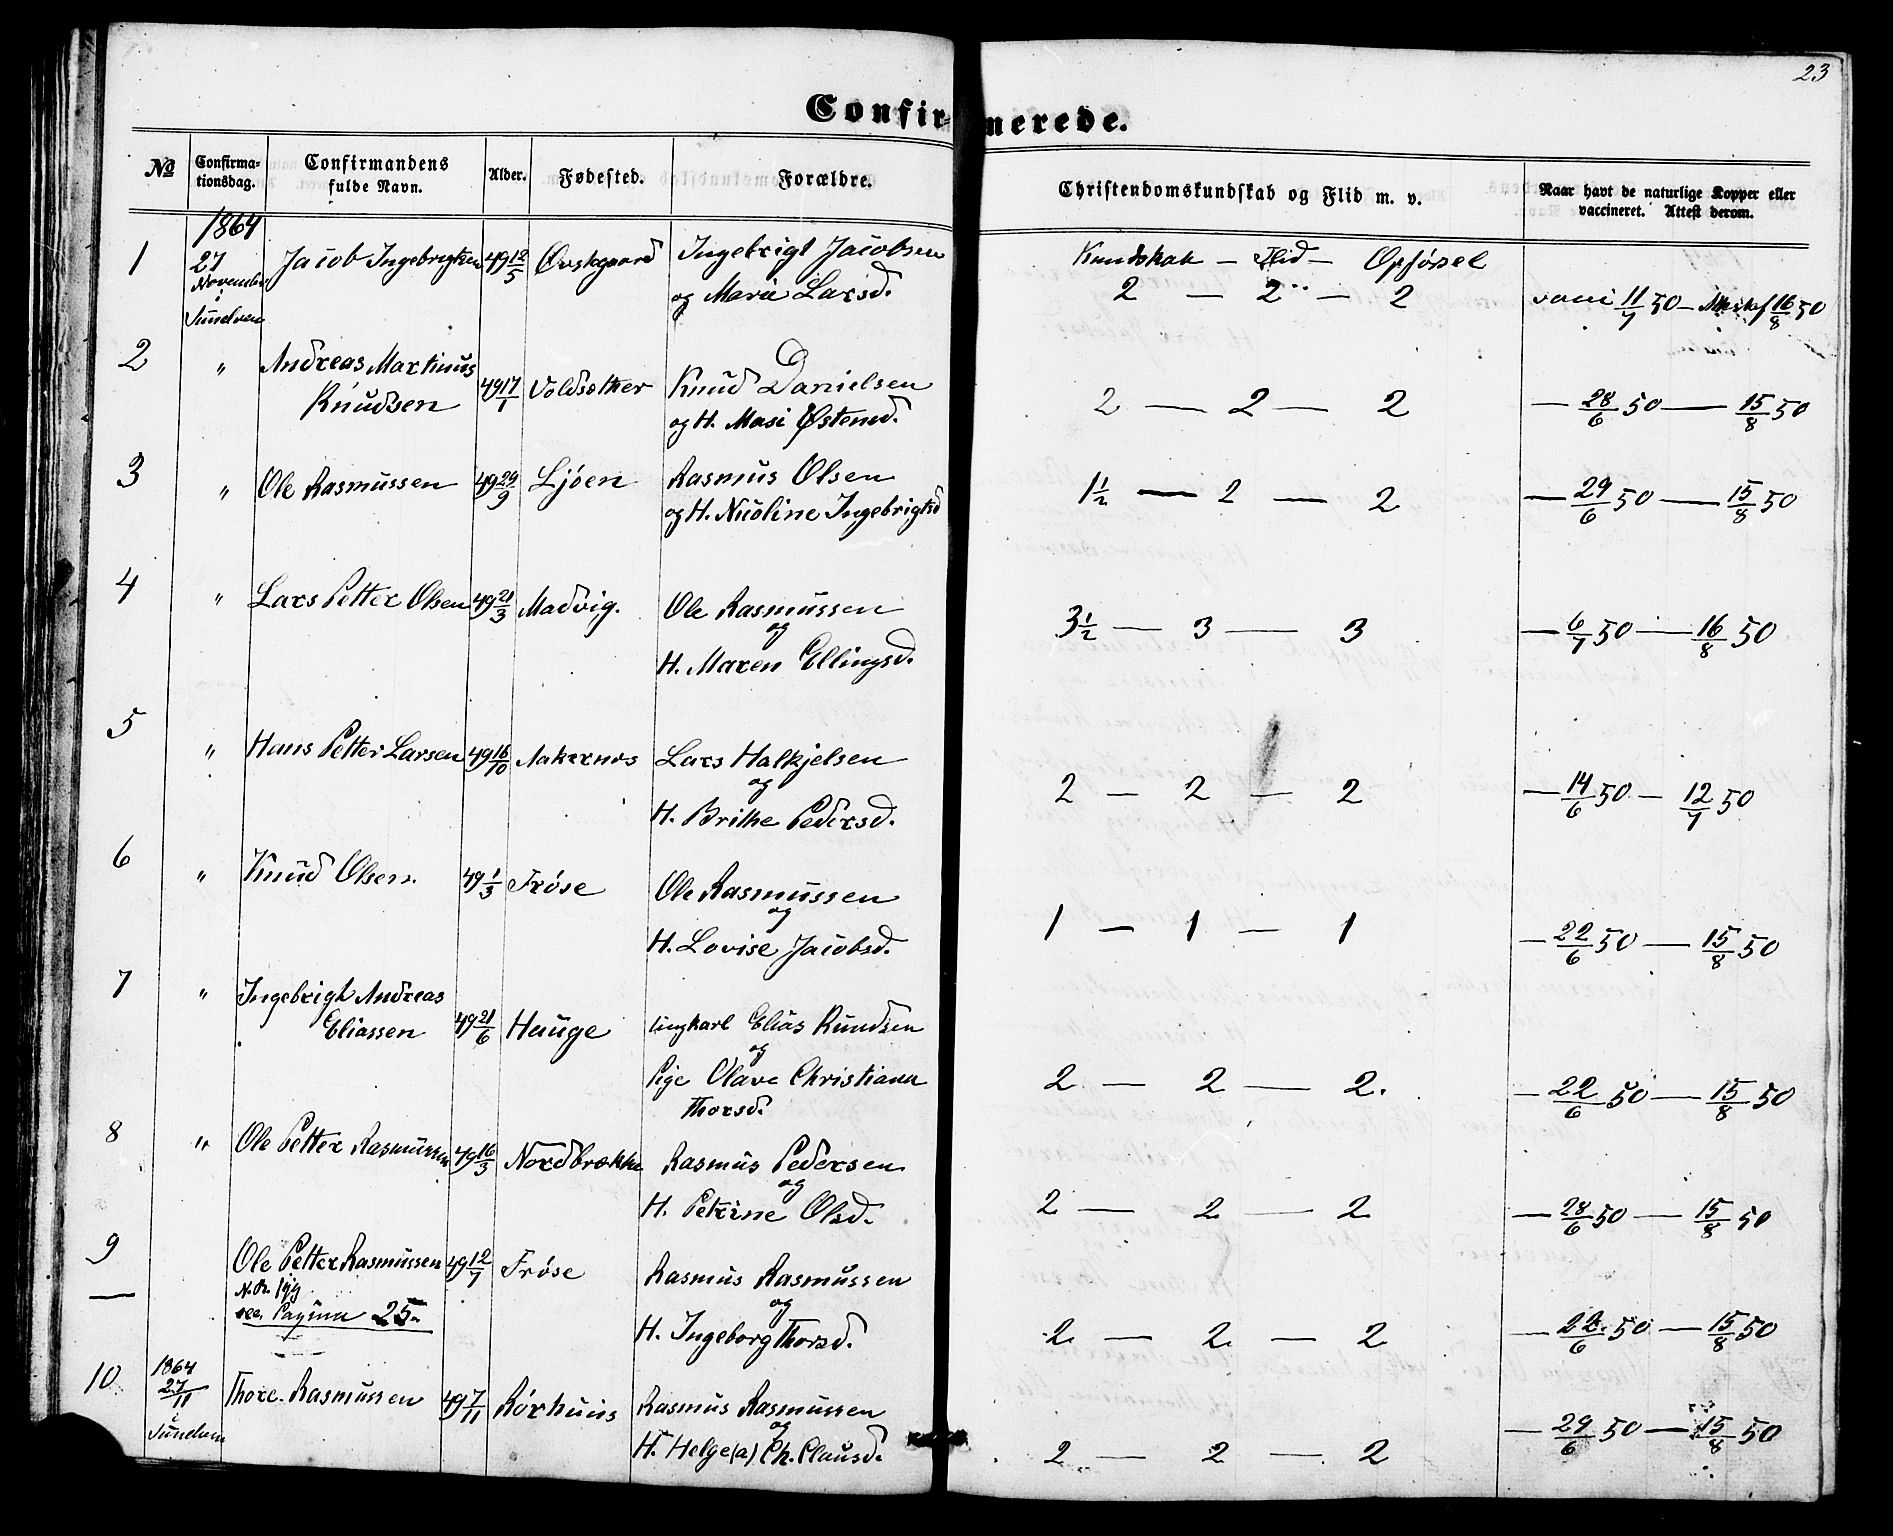 23
Confirmerede.
No
Confirmationsdag.
Confirmandens fulde Navn.
Alder.
Fødested.
Forældre.
Christendomskundskab og Flid m. v.
Naar havt de naturlige Kopper eller vaccineret. Attest derom.
1864
Kundskab — Flid — Opførsel
1 27 November i Jacob Ingebrigtsen 49 12/5 Ingebrigt Jacobsen
og Marie Larsd. 2 — 2 — 2 11/7 50 — 16/8 50
2 " Andreas Martinus
Knudsen 49 17/1 Voldsæther Knud Danielsen
og H. Masi Østensd. 2 — 2 — 2 — 28/6 50 — 15/8 50
3 " Ole Rasmussen 49 29/9 Ljøen Rasmus Olsen
og H. Nicoline Ingebrigtsd 1 1/2 — 2 — 2 — 29/6 50 — 15/8 50
4 " Lars Petter Olsen 49 21/3 Madvig. Ole Rasmussen
og
H. Maren Ellingsd. 3 1/2 — 3 — 3 — 6/7 50 — 16/8 50
5 " Hans Petter Larsen 49 16/10 Aakernes Lars Halkjelsen
og
H. Brithe Pedersd. 2 — 2 — 2 — 14/6 50 — 12/7 50
6 " Knud Olsen. 49 1/3 Frøse Ole Rasmussen
og
H. Lovise Jacobsd. 1 — 1 — 1 — 22/6 50 — 15/8 50
7 " Ingebrigt Andreas
Eliassen 49 21/6 Hauge Ungkarl Elias Knudsen
og
Pige Olave Christiana
Thorsd. 2 — 2 — 2. — 22/6 50 — 15/8 50
8 " Ole Petter Rasmussen 49 16/3 Nordbrække Rasmus Pedersen
og
H. Petrine Olsd. 2 — 2 — 2 — 28/6 50 — 15/8 50
9 Ole Petter Rasmussen 49 12/7 Frøse Rasmus Rasmussen
Pagina 25.
og
H. Ingeborg Thorsd. 2 — 2 — 2 — 22/6 50 — 15/8 50
10 1864 27/11 i Thore Rasmussen 49 7/11 Rørhuus Rasmus Rasmussen
og
H. Helge(a) Ch. Clausd. 2 — 2 — 2 — 29/6 50 — 15/8 50